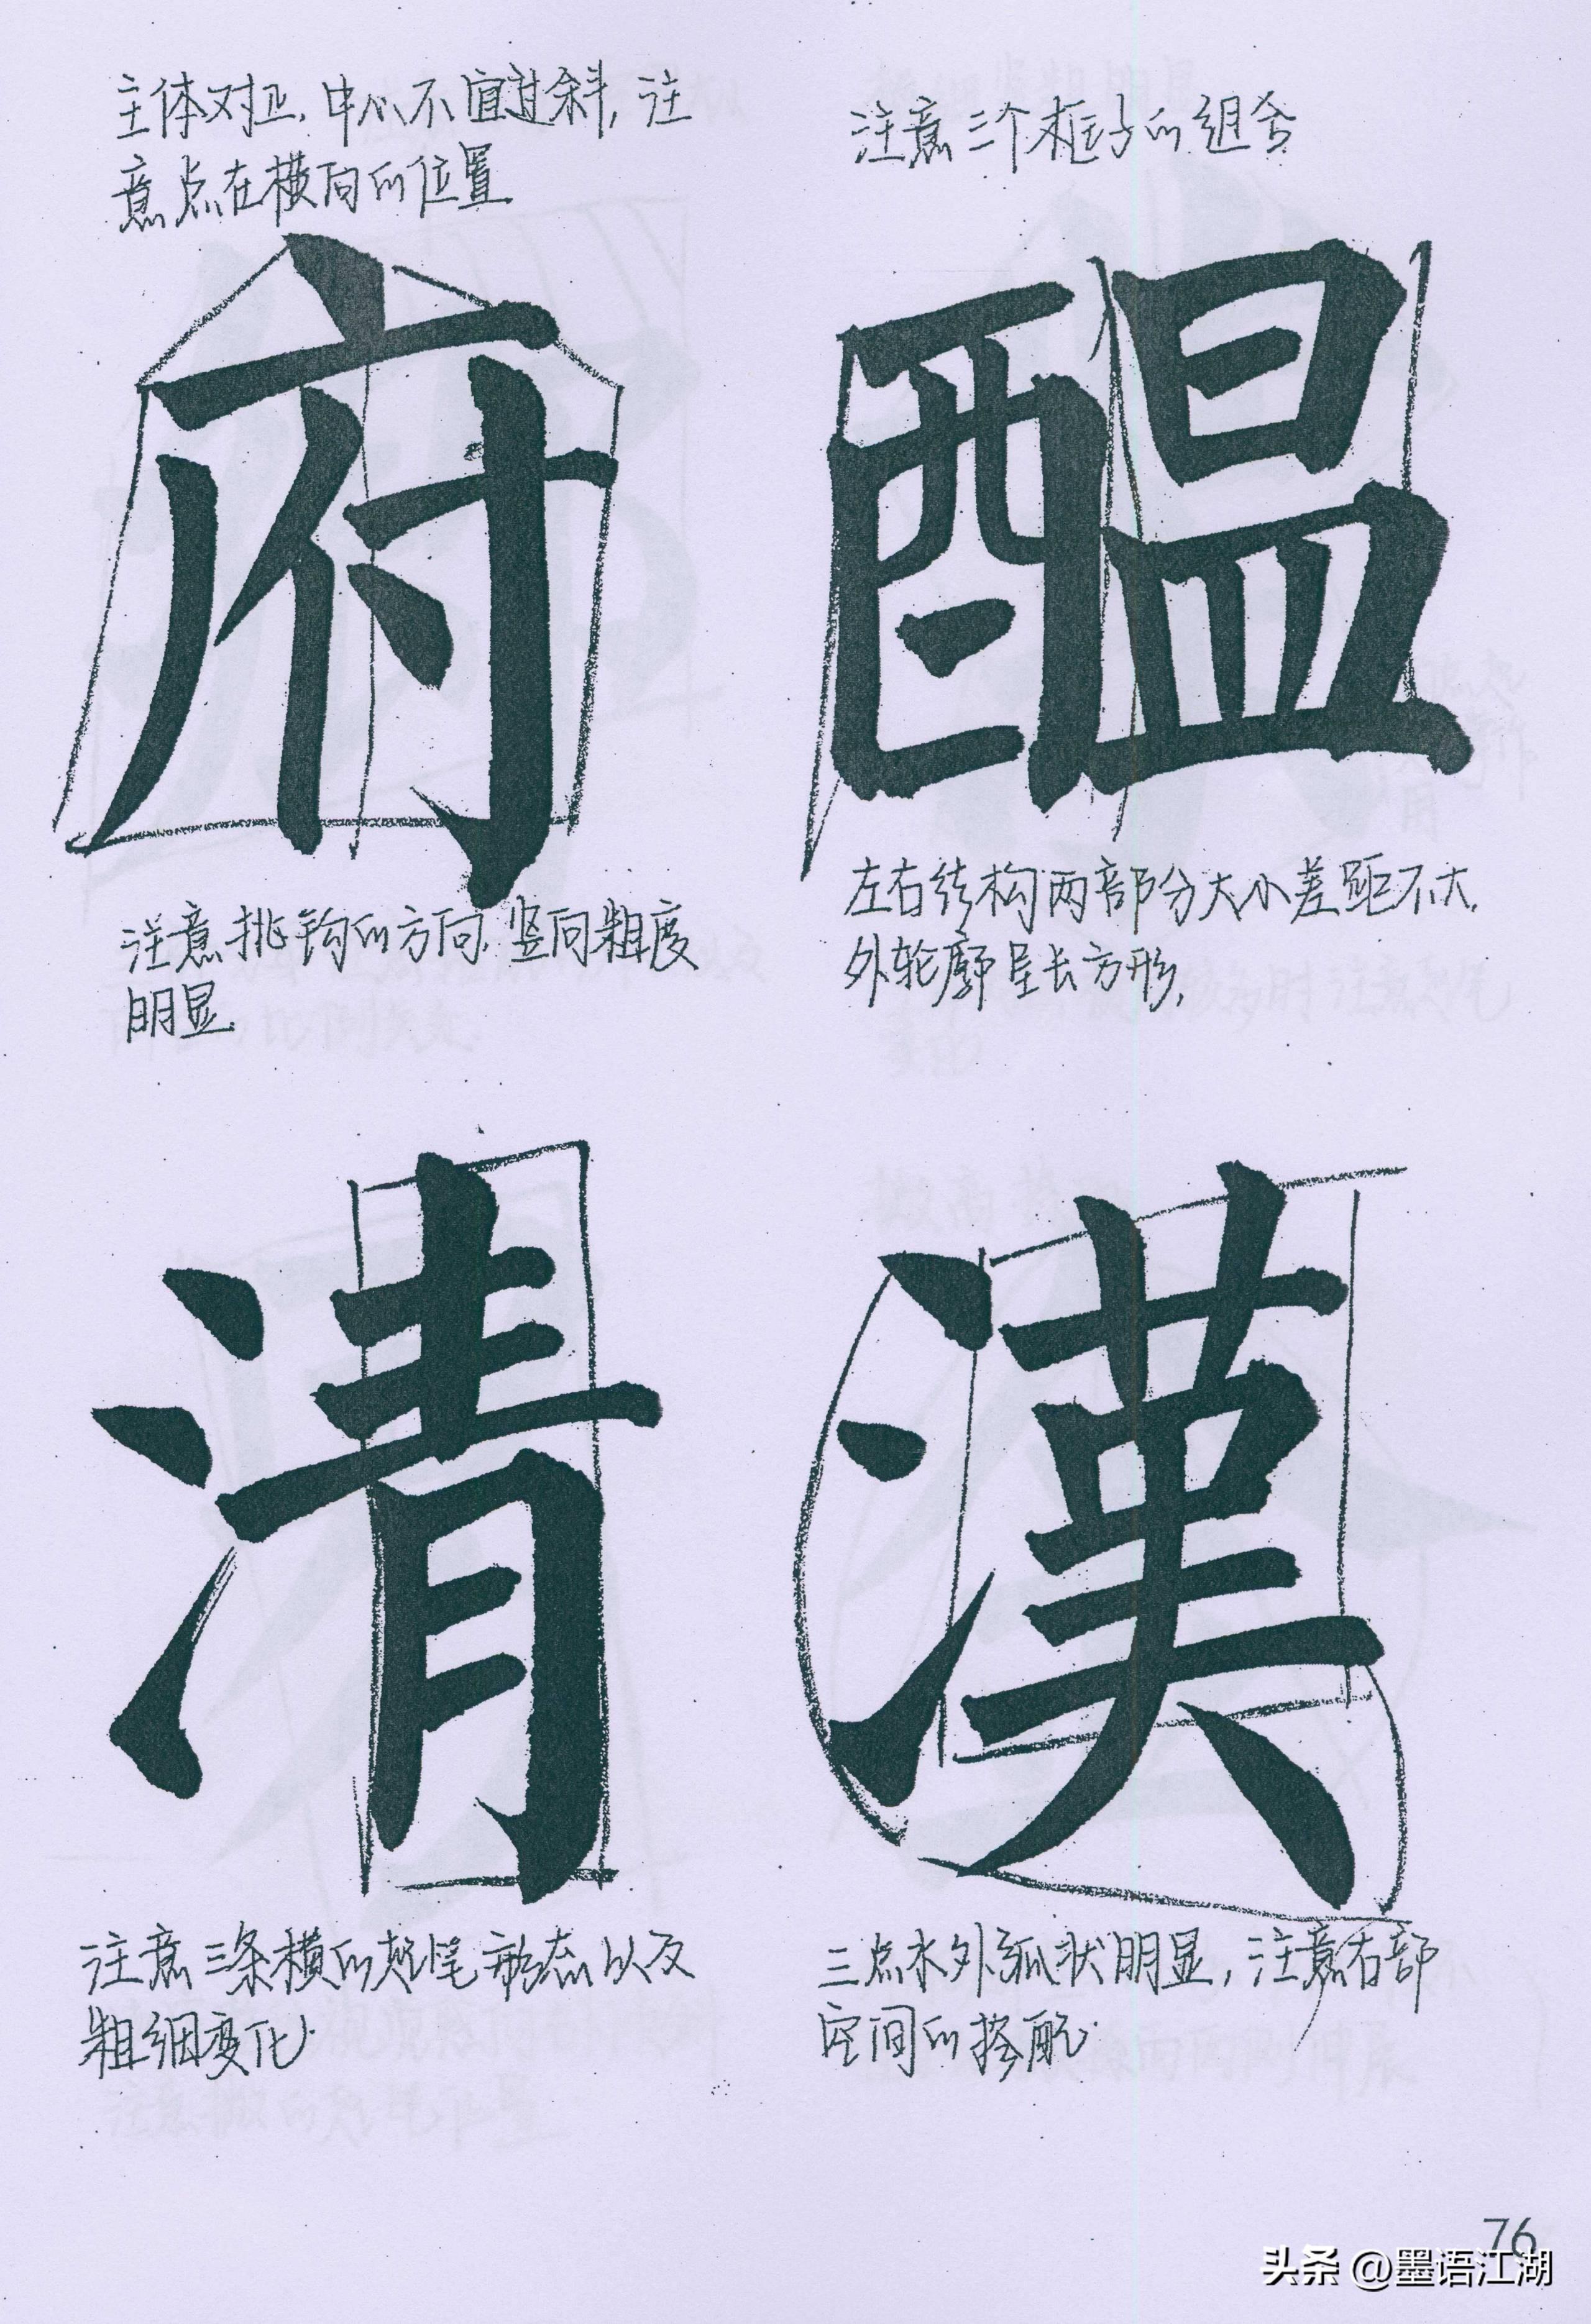 主体对正，中心不宜过斜，注
意点在横向的位置
府
注意挑钩的方向，竖向粗度
明显
注意三个框子的组合
醖
左右结构两部分大小差距不大，
外轮廓呈长方形，
清
注意三条横的起笔形态以及
粗细变化
漢
三点水外弧状明显，注意右部
空间的搭配
76
头条 @墨语江湖